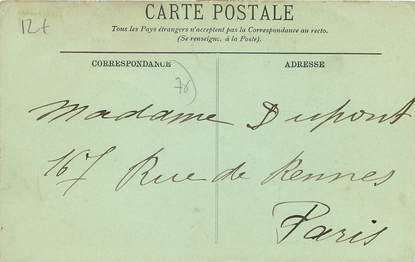 12f
CARTE POSTALE
Tous les Pays étrangers n'acceptent pas la Correspondance au recto.
(Se renseigner à la Poste).
CORRESPONDANCE
ADRESSE
78
Madame Dupont
167 Rue de Rennes
Paris